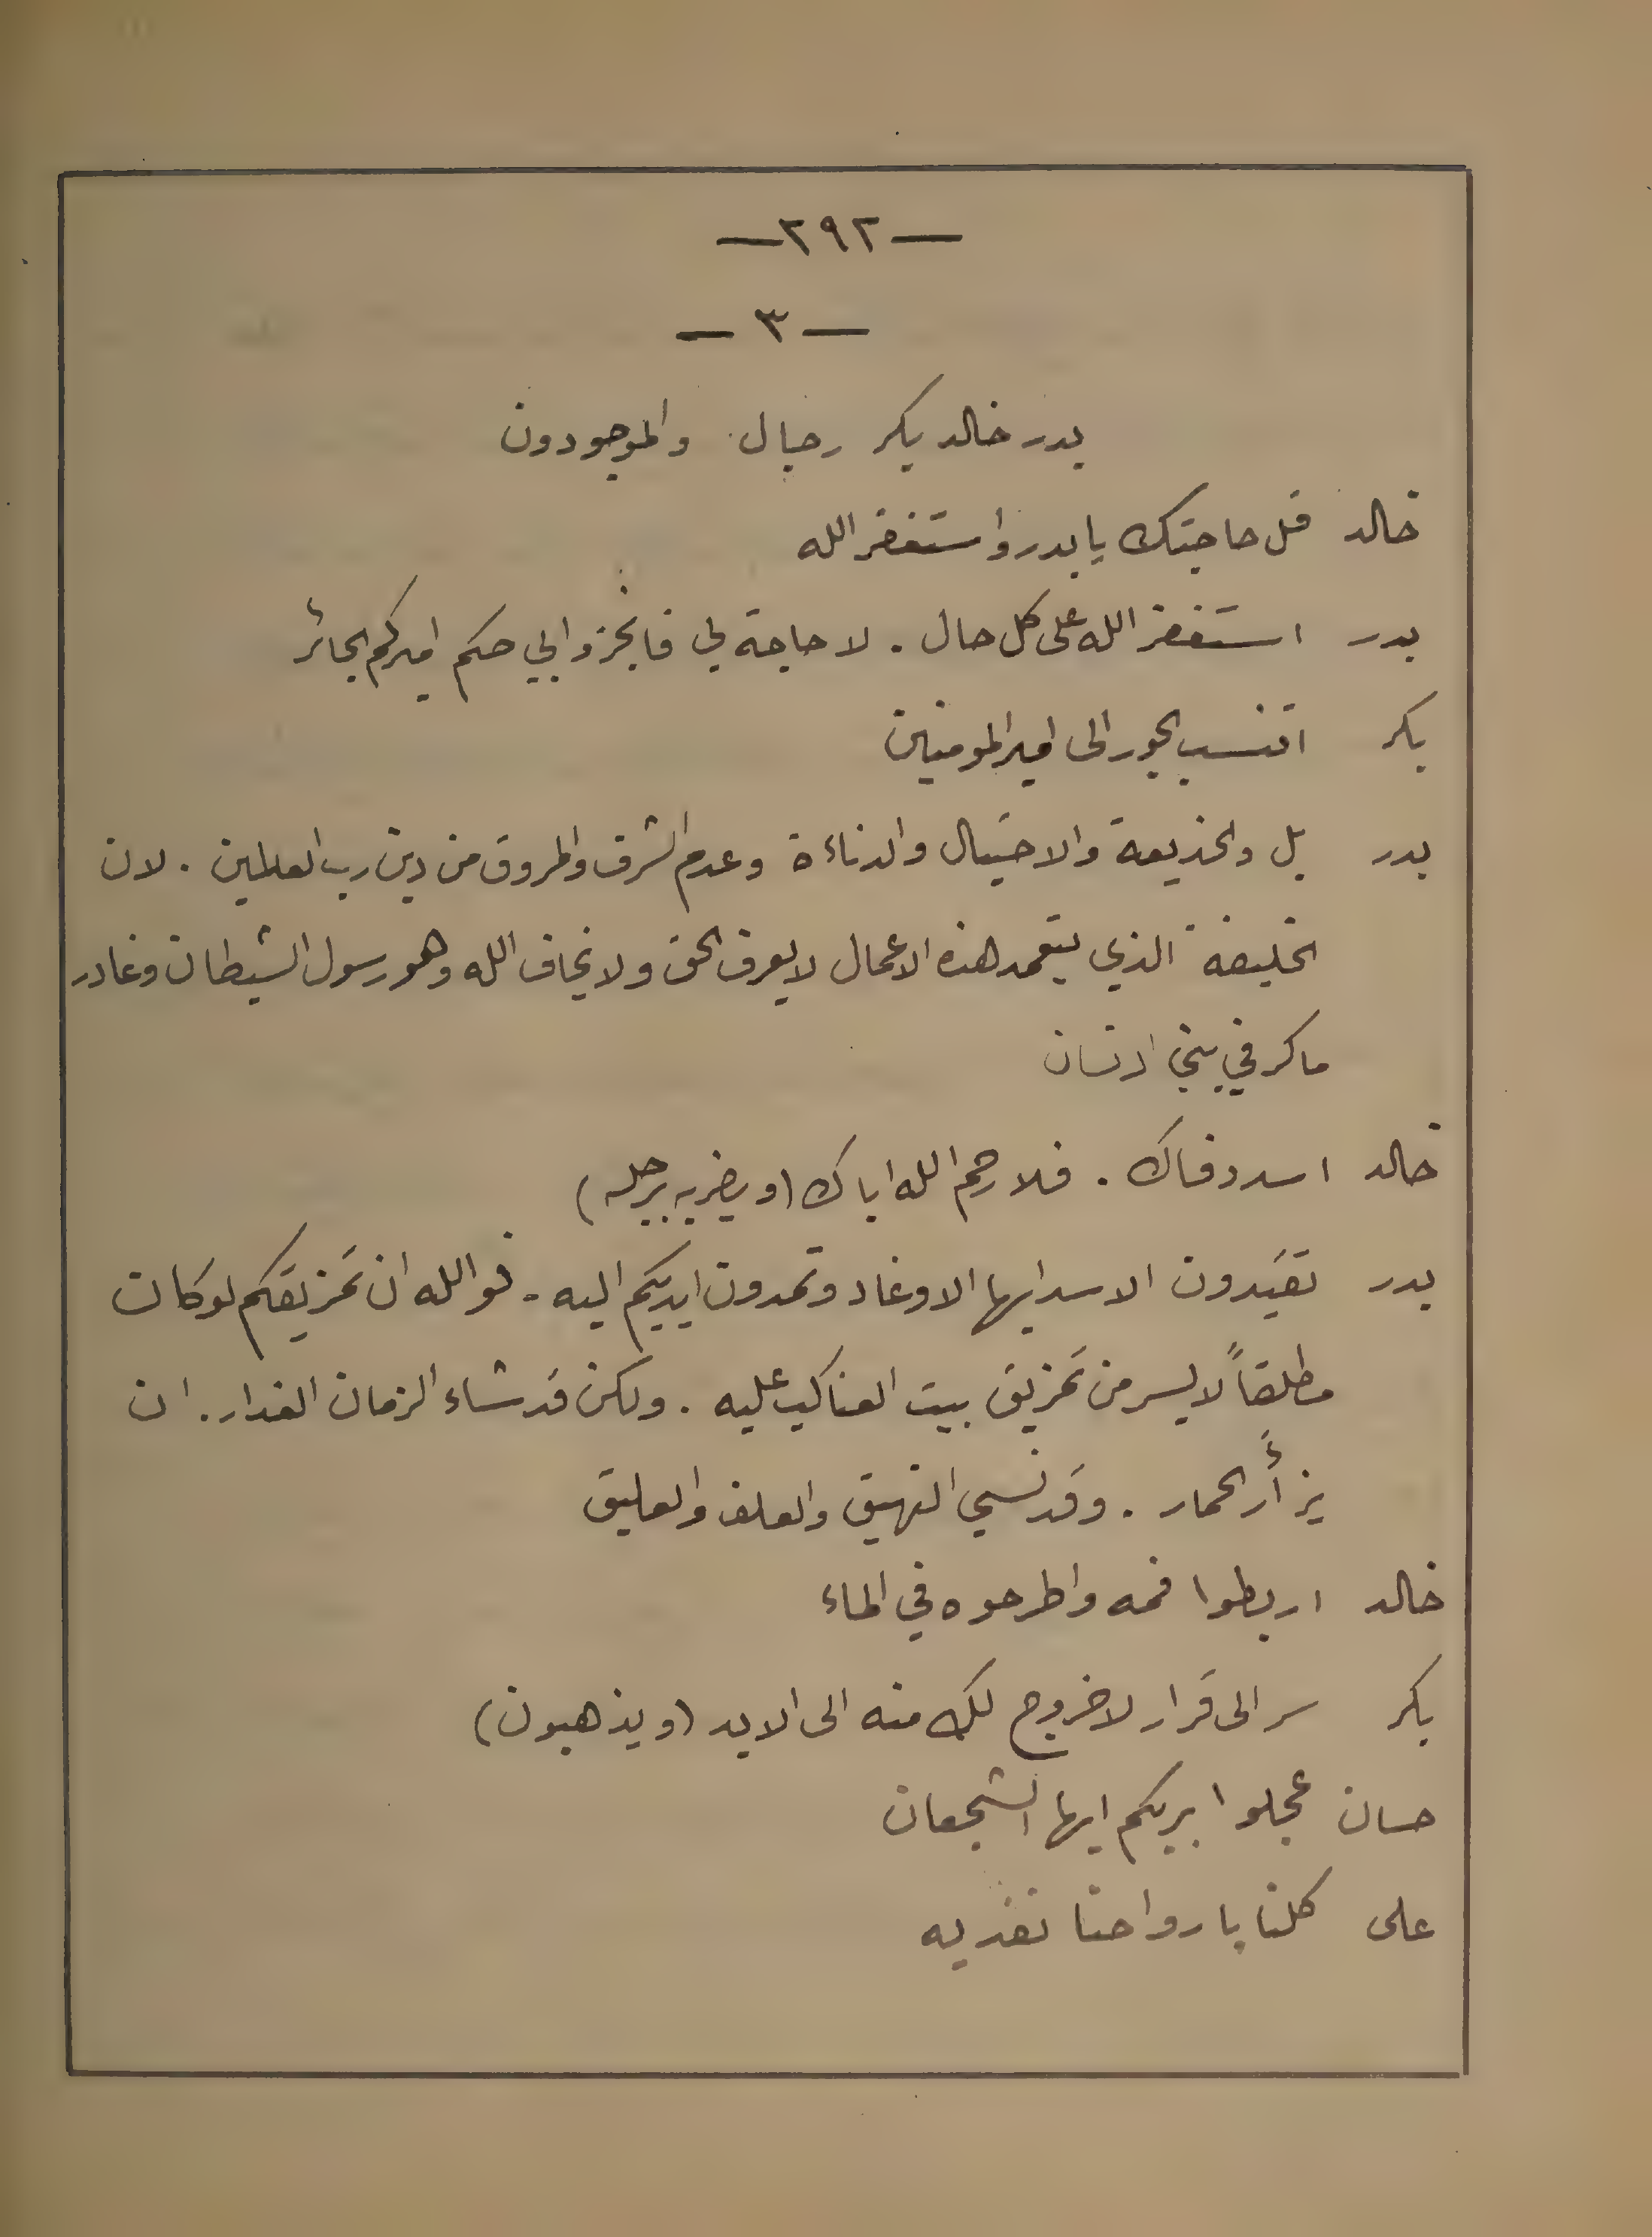 —٢٩٢—
— ٣ —
بدر خالد بكر رجال والموجودون
خالد قل حاجتك يا بدر وأستغفر الله
بدر استغفر الله على كل حال . لا حاجة لي فانجزوا بي حكم اميركم الجائر
بكر اتنسب الجور الى امير المومنين
بدر بل والخديعة والاحتيال والدناءة وعدم الشرف والمروق من دين رب العالمين . لان
الخليفة الذي يتعمد هذه الاعمال لا يعرف الحق ولا يخاف الله وهو رسول الشيطان وغادر
ماكر في بني انسان
خالد اسدد فاك . فلا رحم الله اباك (ويضربه برجله)
بدر تقيَدون الاسد ايها الاوغاد وتمدون ايديكم اليه . فوالله ان تمَزيقكم لو كان
مطلقاً لايسر من تمَزيق بيت العناكب عليه . ولكن قد شاء الزمان الغدار . ان
يزأَر الحمار . وقد نسي النهيق والعلف والعليق
خالد اربطوا فمه واطرحوه في الماء
بكر سر الى قرار لا خروج لك منه الى الابد (ويذهبون)
حسان عجلوا بربكم ايها الشجعان
على كلنا بارواحنا نفديه